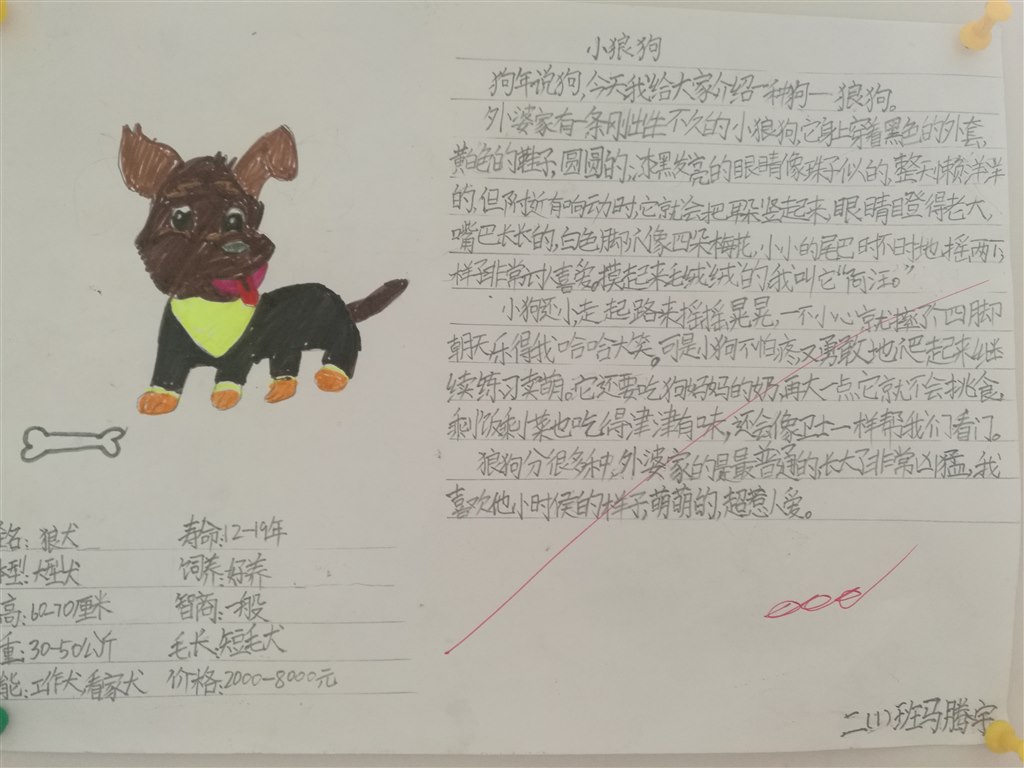 小狼狗
狗年说狗,今天我给大家介绍一种狗—狼狗。
外婆家有一条刚出生不久的小狼狗,它身上穿着黑色的外套,
黄色的鞋子,圆圆的,漆黑发亮的眼睛像珠子似的,整天懒洋洋
的,但所技有响动时,它就会把耳朵竖起来,眼睛瞪得老大,
嘴巴长长的,白色脚爪像四朵梅花,小小的尾巴时不时地摇两下
样子非常讨人喜爱。摸起来毛绒绒的我叫它“阿汪。”
小狗还小,走起路来摇摇晃晃,一不小心就摔了个四脚
朝天乐得我哈哈大笑。可是小狗不怕疼又勇敢地爬起来继
续练习卖萌。它还要吃狗妈妈的奶,再大一点它就不会挑食,
剩饭剩菜也吃得津津有味,还会像卫士一样帮我们看门。
狼狗分很多种,外婆家的是最普通的,长大了非常凶猛,我
喜欢他小时侯的样子,萌萌的,超惹人爱。
名:狼犬 寿命:12-19年
型:大型犬 饲养:好养
高:62-70厘米 智商:一般
重:30-50公斤 毛长:短毛犬
能:工作犬,看家犬 价格:2000-8000元
二(1)班马腾宇